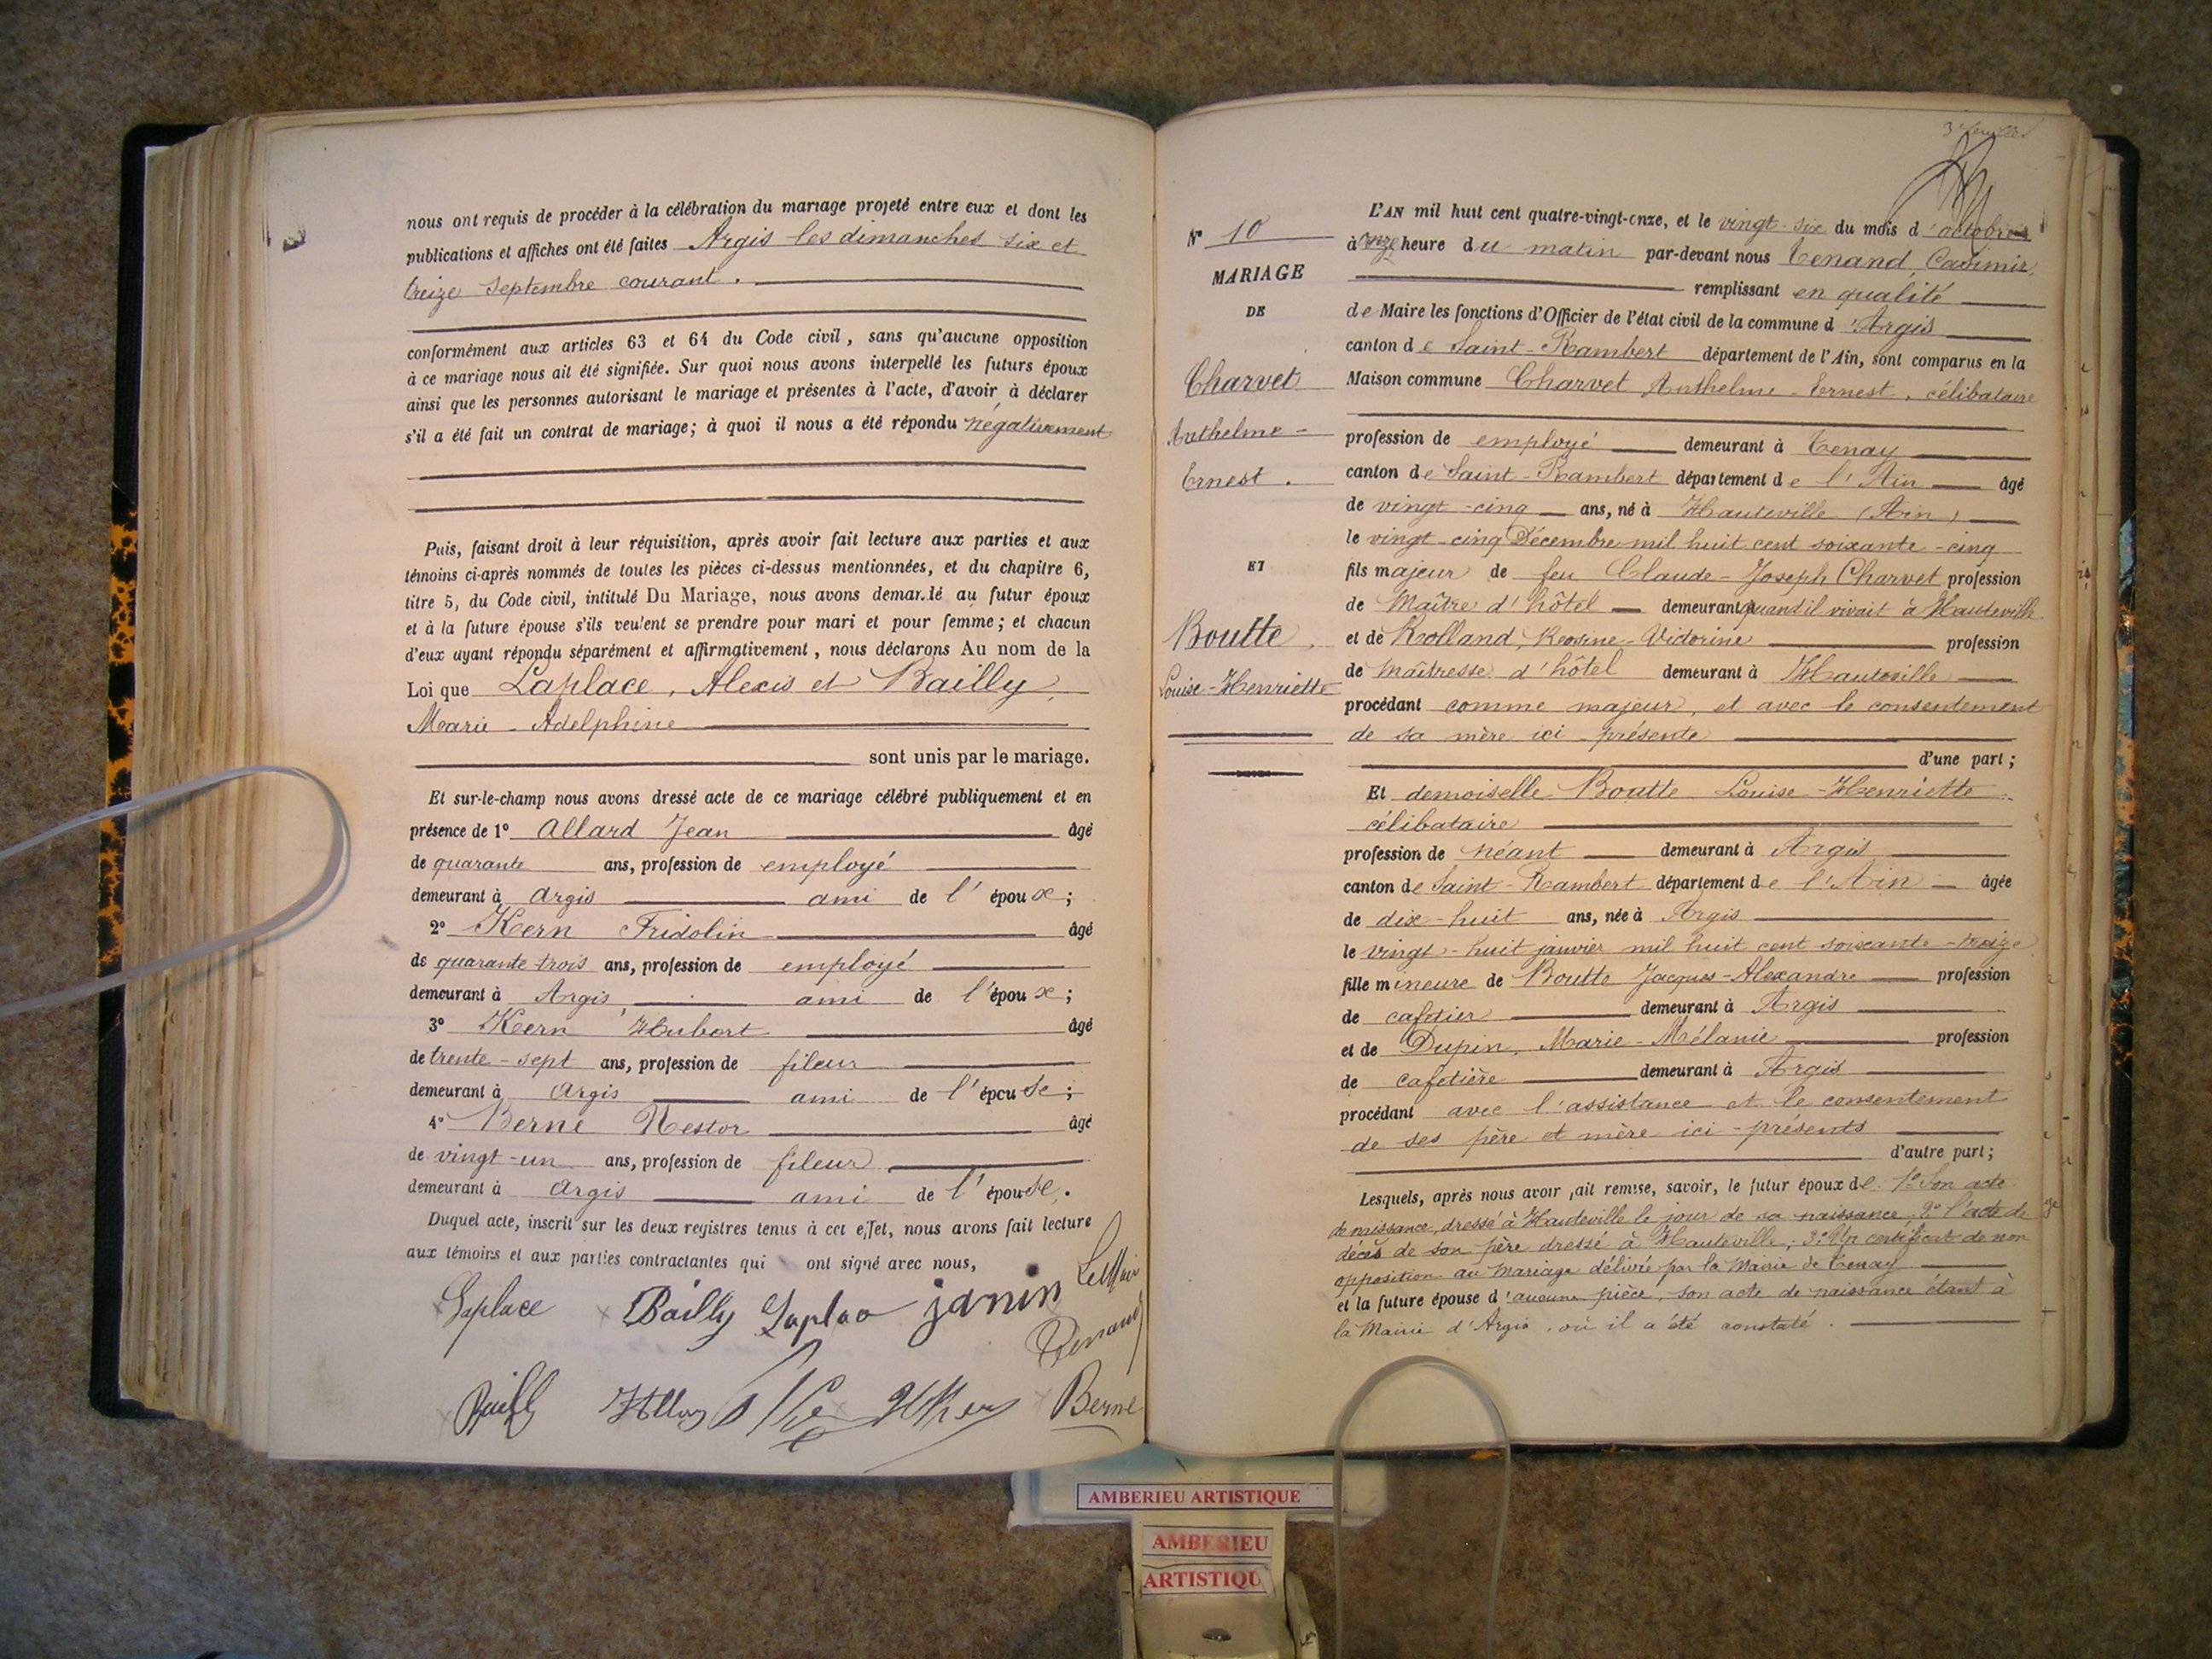 nous ont requis de procéder à la célébration du mariage projeté entre eux et dont les
publications et affiches ont été faites Argis les dimanches six et
treize septembre courant.
conformément aux articles 63 et 64 du Code civil, sans qu'aucune opposition
à ce mariage nous ait été signifiée. Sur quoi nous avons interpellé les futurs époux
ainsi que les personnes autorisant le mariage et présentes à l'acte, d'avoir à déclarer
s'il a été fait un contrat de mariage; à quoi il nous a été répondu négativement
Puis, faisant droit à leur réquisition, après avoir fait lecture aux parties et aux
témoins ci-après nommés de toutes les pièces ci-dessus mentionnées, et du chapitre 6,
titre 5, du Code civil, intitulé Du Mariage, nous avons demandé au futur époux
et à la future épouse s'ils veulent se prendre pour mari et pour femme; et chacun
d'eux ayant répondu séparément et affirmativement, nous déclarons Au nom de la
Loi que Laplace, Alexis et Bailly,
Marie-Adelphine
sont unis par le mariage.
Et sur-le-champ nous avons dressé acte de ce mariage célébré publiquement et en
présence de 1° Allard Jean âgé
de quarante ans, profession de employé
demeurant à Argis ami de l'époux;
2° Kern Fridolin âgé
de quarante trois ans, profession de employé
demeurant à Argis ami de l'époux;
3° Kern Hubert âgé
de trente-sept ans, profession de fileur
demeurant à Argis ami de l'épouse;
4° Berne Nestor âgé
de vingt-un ans, profession de fileur
demeurant à Argis ami de l'épouse.
Duquel acte, inscrit sur les deux registres tenus à cet effet, nous avons fait lecture
aux témoins et aux parties contractantes qui ont signé avec nous,
Laplace Bailly Laplace janin
Berne
N° 10
MARIAGE
DE
Charvet
Anthelme-
Ernest.
ET
Boutte,
Louise-Henriette
L'AN mil huit cent quatre-vingt-onze, et le vingt-six du mois d'octobre
à onze heure du matin par-devant nous Tenand, Casimir,
remplissant en qualité
de Maire les fonctions d'Officier de l'état civil de la commune d'Argis
canton de Saint-Rambert département de l'Ain, sont comparus en la
Maison commune Charvet Anthelme-Ernest, célibataire
profession de employé demeurant à Tenay
canton de Saint-Rambert département de l'Ain âgé
de vingt-cinq ans, né à Hauteville (Ain)
le vingt-cinq Décembre mil huit cent soixante-cinq
fils majeur de feu Claude-Joseph Charvet profession
de Maître d'hôtel demeurant quand il vivait à Hauteville
et de Rolland, Rosine-Victorine profession
de maîtresse d'hôtel demeurant à Hauteville
procédant comme majeur, et avec le consentement
de sa mère ici-présente
d'une part;
Et demoiselle Boutte Louise-Henriette
célibataire
profession de néant demeurant à Argis
canton de Saint-Rambert département de l'Ain âgée
de dix-huit ans, née à Argis
le vingt-huit janvier mil huit cent soixante-treize
fille mineure de Boutte Jacques-Alexandre profession
de cafetier demeurant à Argis
et de Dupin, Marie-Mélanie profession
de cafetière demeurant à Argis
procédant avec l'assistance et le consentement
de ses père et mère ici-présents
d'autre part;
Lesquels, après nous avoir fait remise, savoir, le futur époux de 1° Son acte
de naissance, dressé à Hauteville le jour de sa naissance; 2° l'acte de
décès de son père dressé à Hauteville; 3° Un certificat de non
opposition au Mariage délivré par la Mairie de Tenay
et la future épouse d'aucune pièce, son acte de naissance étant à
la Mairie d'Argis, où il a été constaté.
AMBERIEU ARTISTIQUE
AMBERIEU
ARTISTIQU